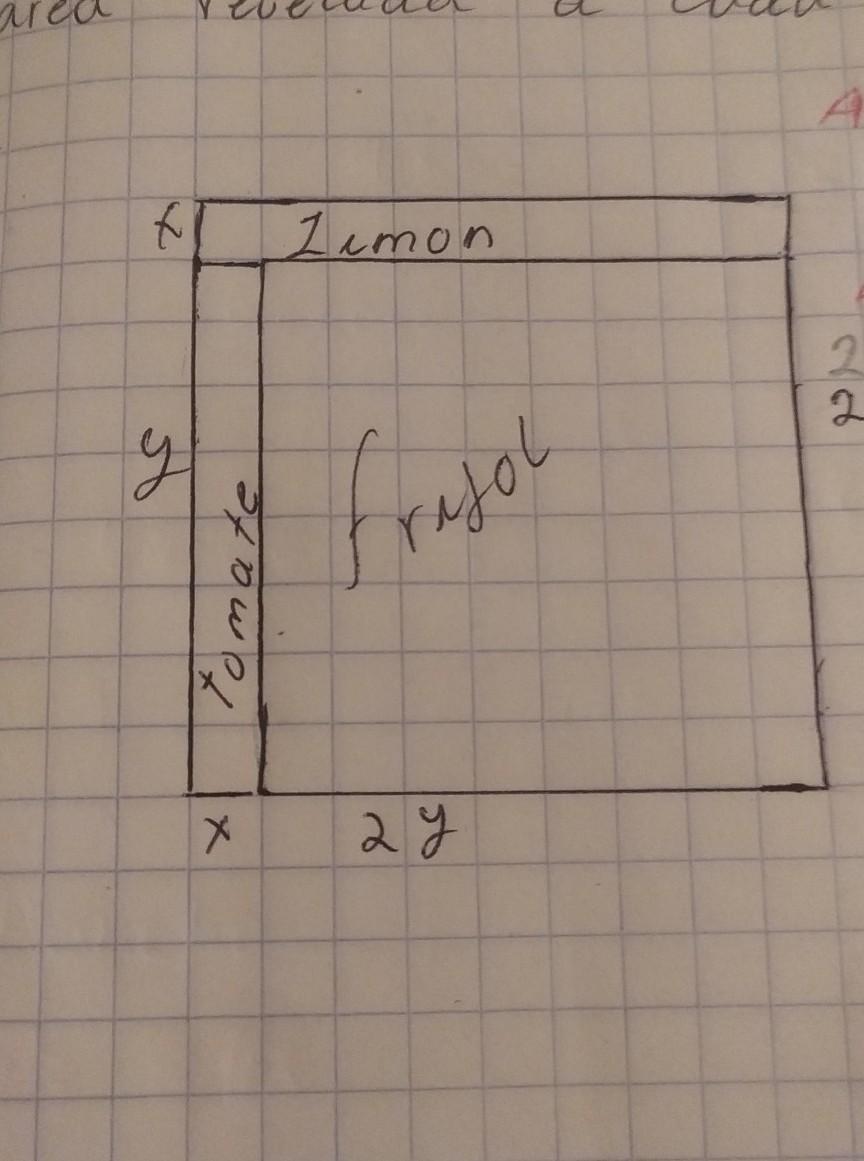 area
a
A
x
Limon
2
2
y
tomate
frijol
x 2y